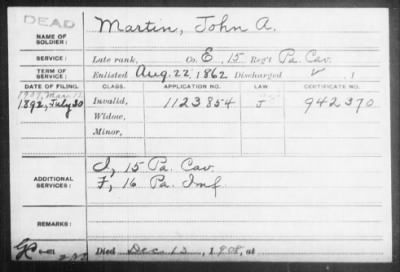 DEAD
NAME OF SOLDIER: Martin, John A.
SERVICE: Late rank, Co. E, 15 Reg't Pa. Cav.
TERM OF SERVICE: Enlisted Aug. 22, 1862 Discharged , 1
DATE OF FILING. CLASS. APPLICATION NO. LAW CERTIFICATE NO.
1892, July 30 Invalid, 1123854 J 942370
Widow,
Minor,
ADDITIONAL SERVICES: 15 Pa. Cav.
F, 16 Pa. Inf.
REMARKS:
Died Dec 13, 1908, at